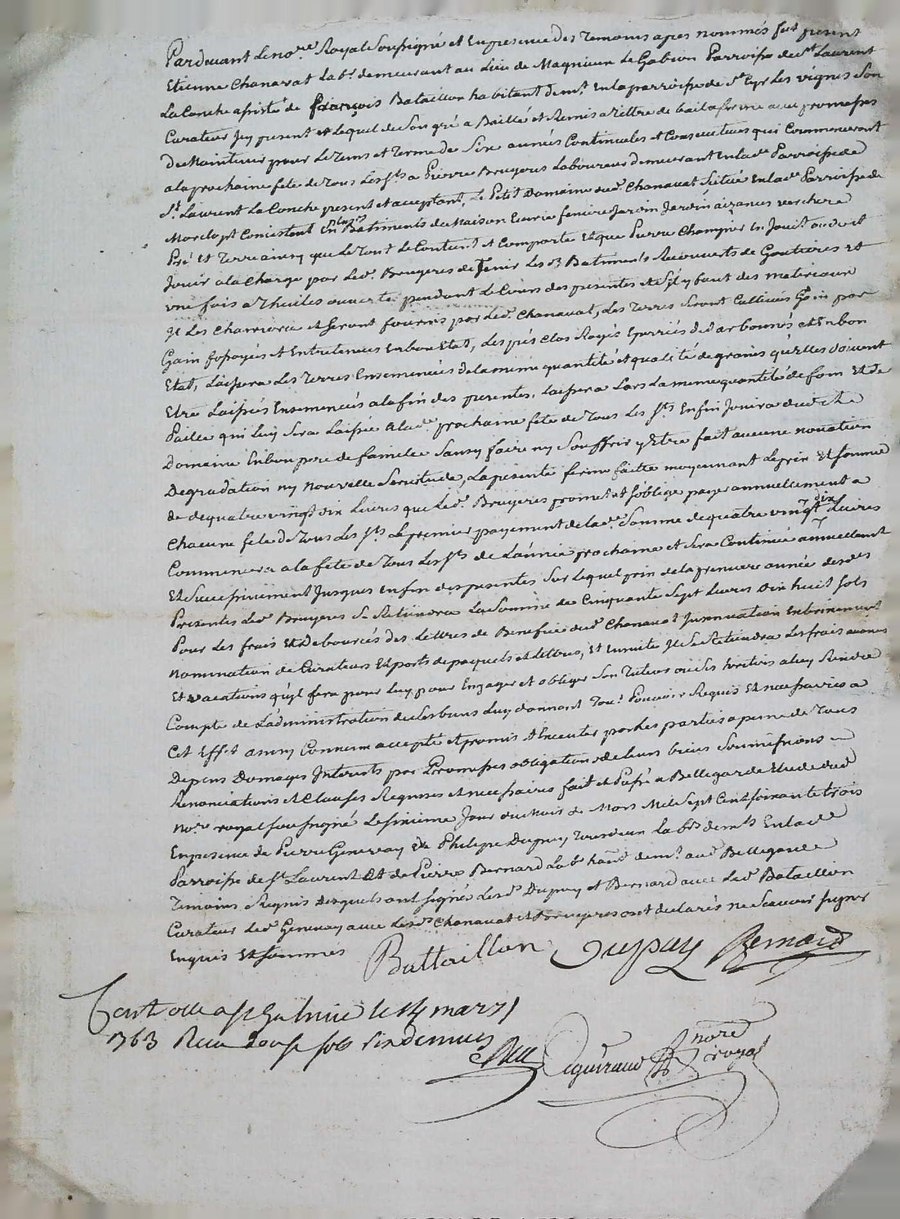 Pardevant Le no.re Royal Soussigné et En presence Des Temoins apres nommés fut present
Etienne Chanavat Lab.r demeurant au Lieu de Magnieux Le Gabion Parroisse de S.t Laurent
La Conche assisté de françois Bataillon habitant dem.t En la parroisse de S.t Cyr Les vignes Son
Curateur Icy present et Lequel de Son gré a Baillé et Remis a tiltre de bail a ferme avec promesses
De Maintenir pour Le tems et terme de Six années Continuelles et Consecutives qui Commenceront
a la prochaine fete de tous Les S.ts a Pierre Bruyeres Laboureur demeurant En lad.e Parroisse de
S.t Laurent La Conche present et acceptant, Le Petit Domaine dud. Chanavat Situé En lad.e Parroisse de
Consistant En Batiments de Maison Ecurie feniere Jardin aizances verchere
Pré et Terre ainsy que Le Tout Se Contient et Comporte Et que Pierre en Jouit ou doit
Jouir a la Charge par Led. Bruyeres de Tenir Les d. Batiments Recouverts de Goutieres et
une fois a Thuiles ouverte pendant Le Cours des presentes et S'il y faut des materiaux
Il Les Charriera et Seront fournis par Led. Chanavat, Les Terres Seront Cultivées Gain par
Gain fossoyés et Entretenues En bon Etat, Les prés Clos Rayés Epierrés et En bon
Etat, Laissera Les Terres Ensemencées de la meme quantité et qualité de grains qu'Elles doivent
Etre Laissés Ensemencés a la fin des presentes, Laissera Lors la meme quantité de foin Et de
Paille qui Luy Sera Laissée a Lad.e prochaine fete de Tous Les S.ts Enfin Jouira dud.
Domaine En bon pere de famille Sans y faire ny Souffrir y Etre fait aucune novation
Degradation ny Nouvelle Servitude, La presente ferme faitte moyennant Le prix Et Somme
de quatre vingt dix Livres que Led. Bruyeres promet et S'oblige payer annuellement a
Chacune fete De Tous Les S.ts Le premier payement de lad.e Somme de quatre vingt dix Livres
Commencera a la fete de Tous Les S.ts de L'année prochaine et Sera Continué annuellement
Et Succesivement Jusques En fin des presentes Sur Lequel prix de la premiere année des d.es
Presentes Led. Bruyeres Se Retiendra La Somme de Cinquante Sept Livres Dix huit Sols
Pour Les frais Et Debourcés des Lettres de Benefice dud. Chanavat
Nomination de Curateur Et ports de paquets et Lettres, Et Ensuite Il Se Retiendra Les frais
Et vacations qu'il fera pour Luy pour Engager et obliger Son Tuteur ou Ses heritiers a luy Rendre
Compte de L'administration de Ses biens Luy donnant Tout Pouvoir Requis Et necessaire a
Cet Effet ainsy Convenu accepté et promis Executer par les parties a peine de Tous
Depens Domages Interets par Promesses obligation de Leurs biens Soumissions
Renonciations et Clauses Requises et necessaires fait et Passé a Bellegarde Etude dud.
No.re royal soussigné Le Jour du Mois de Mars Mil Sept Cent soixante trois
En presence de Pierre Genevay Philipe Dupuy Lab.rs dem.ts En lad.e
Parroisse de S.t Laurent Et de Pierre Bernard Lab.r hab.t dem.t aud. Bellegarde
Temoins Requis desquels ont Signé Les d. Dupuy et Bernard avec Led. Bataillon
Curateur Led. Genevay avec Les d. Chanavat et Bruyeres ont declarés ne Scavoir Signer
Enquis Et Sommes
Battaillon Dupuy Bernard
Controllé a S.t Galmier le 14 mars
1763 Recu douze sols Six deniers
Eiguiraud no.re royal